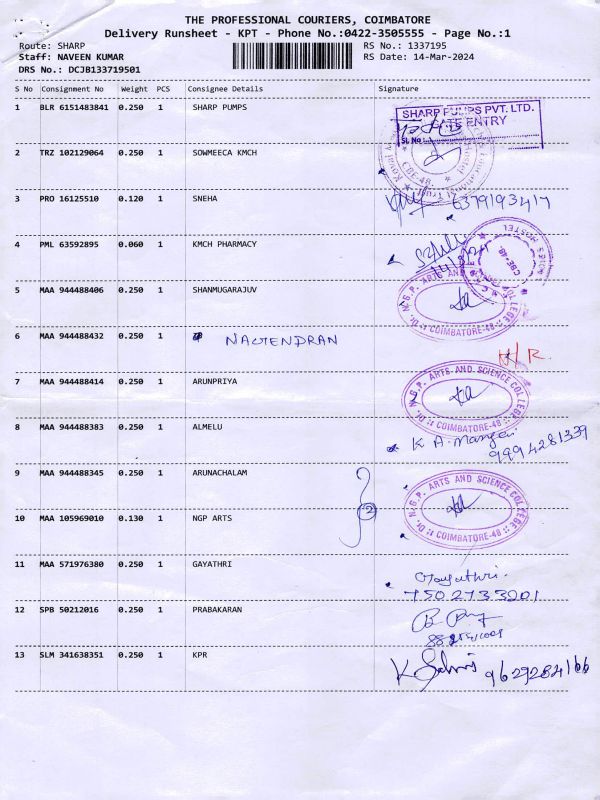 THE PROFESSIONAL COURIERS, COIMBATORE
Delivery Runsheet - KPT - Phone No.:0422-3505555 - Page No.:1
Route: SHARP RS No.: 1337195
Staff: NAVEEN KUMAR RS Date: 14-Mar-2024
DRS No.: DCJB133719501
S No Consignment No Weight PCS Consignee Details Signature
1 BLR 6151483841 0.250 1 SHARP PUMPS
SHARP PUMPS PVT. LTD.
GATE ENTRY
Sl. No
2 TRZ 102129064 0.250 1 SOWMEECA KMCH
3 PRO 16125510 0.120 1 SNEHA 6379193417
4 PML 63592895 0.060 1 KMCH PHARMACY
5 MAA 944488406 0.250 1 SHANMUGARAJUV
Dr. N.G.P. ARTS AND SCIENCE COLLEGE
COIMBATORE-48
6 MAA 944488432 0.250 1 NAGENDRAN
N/R.
7 MAA 944488414 0.250 1 ARUNPRIYA
Dr. N.G.P. ARTS AND SCIENCE COLLEGE
COIMBATORE-48
8 MAA 944488383 0.250 1 ALMELU
K A.
9994281339
9 MAA 944488345 0.250 1 ARUNACHALAM
Dr. N.G.P. ARTS AND SCIENCE COLLEGE
COIMBATORE-48
10 MAA 105969010 0.130 1 NGP ARTS 2
11 MAA 571976380 0.250 1 GAYATHRI
Gayathri.
7502733201
12 SPB 50212016 0.250 1 PRABAKARAN
13 SLM 341638351 0.250 1 KPR
9629284166